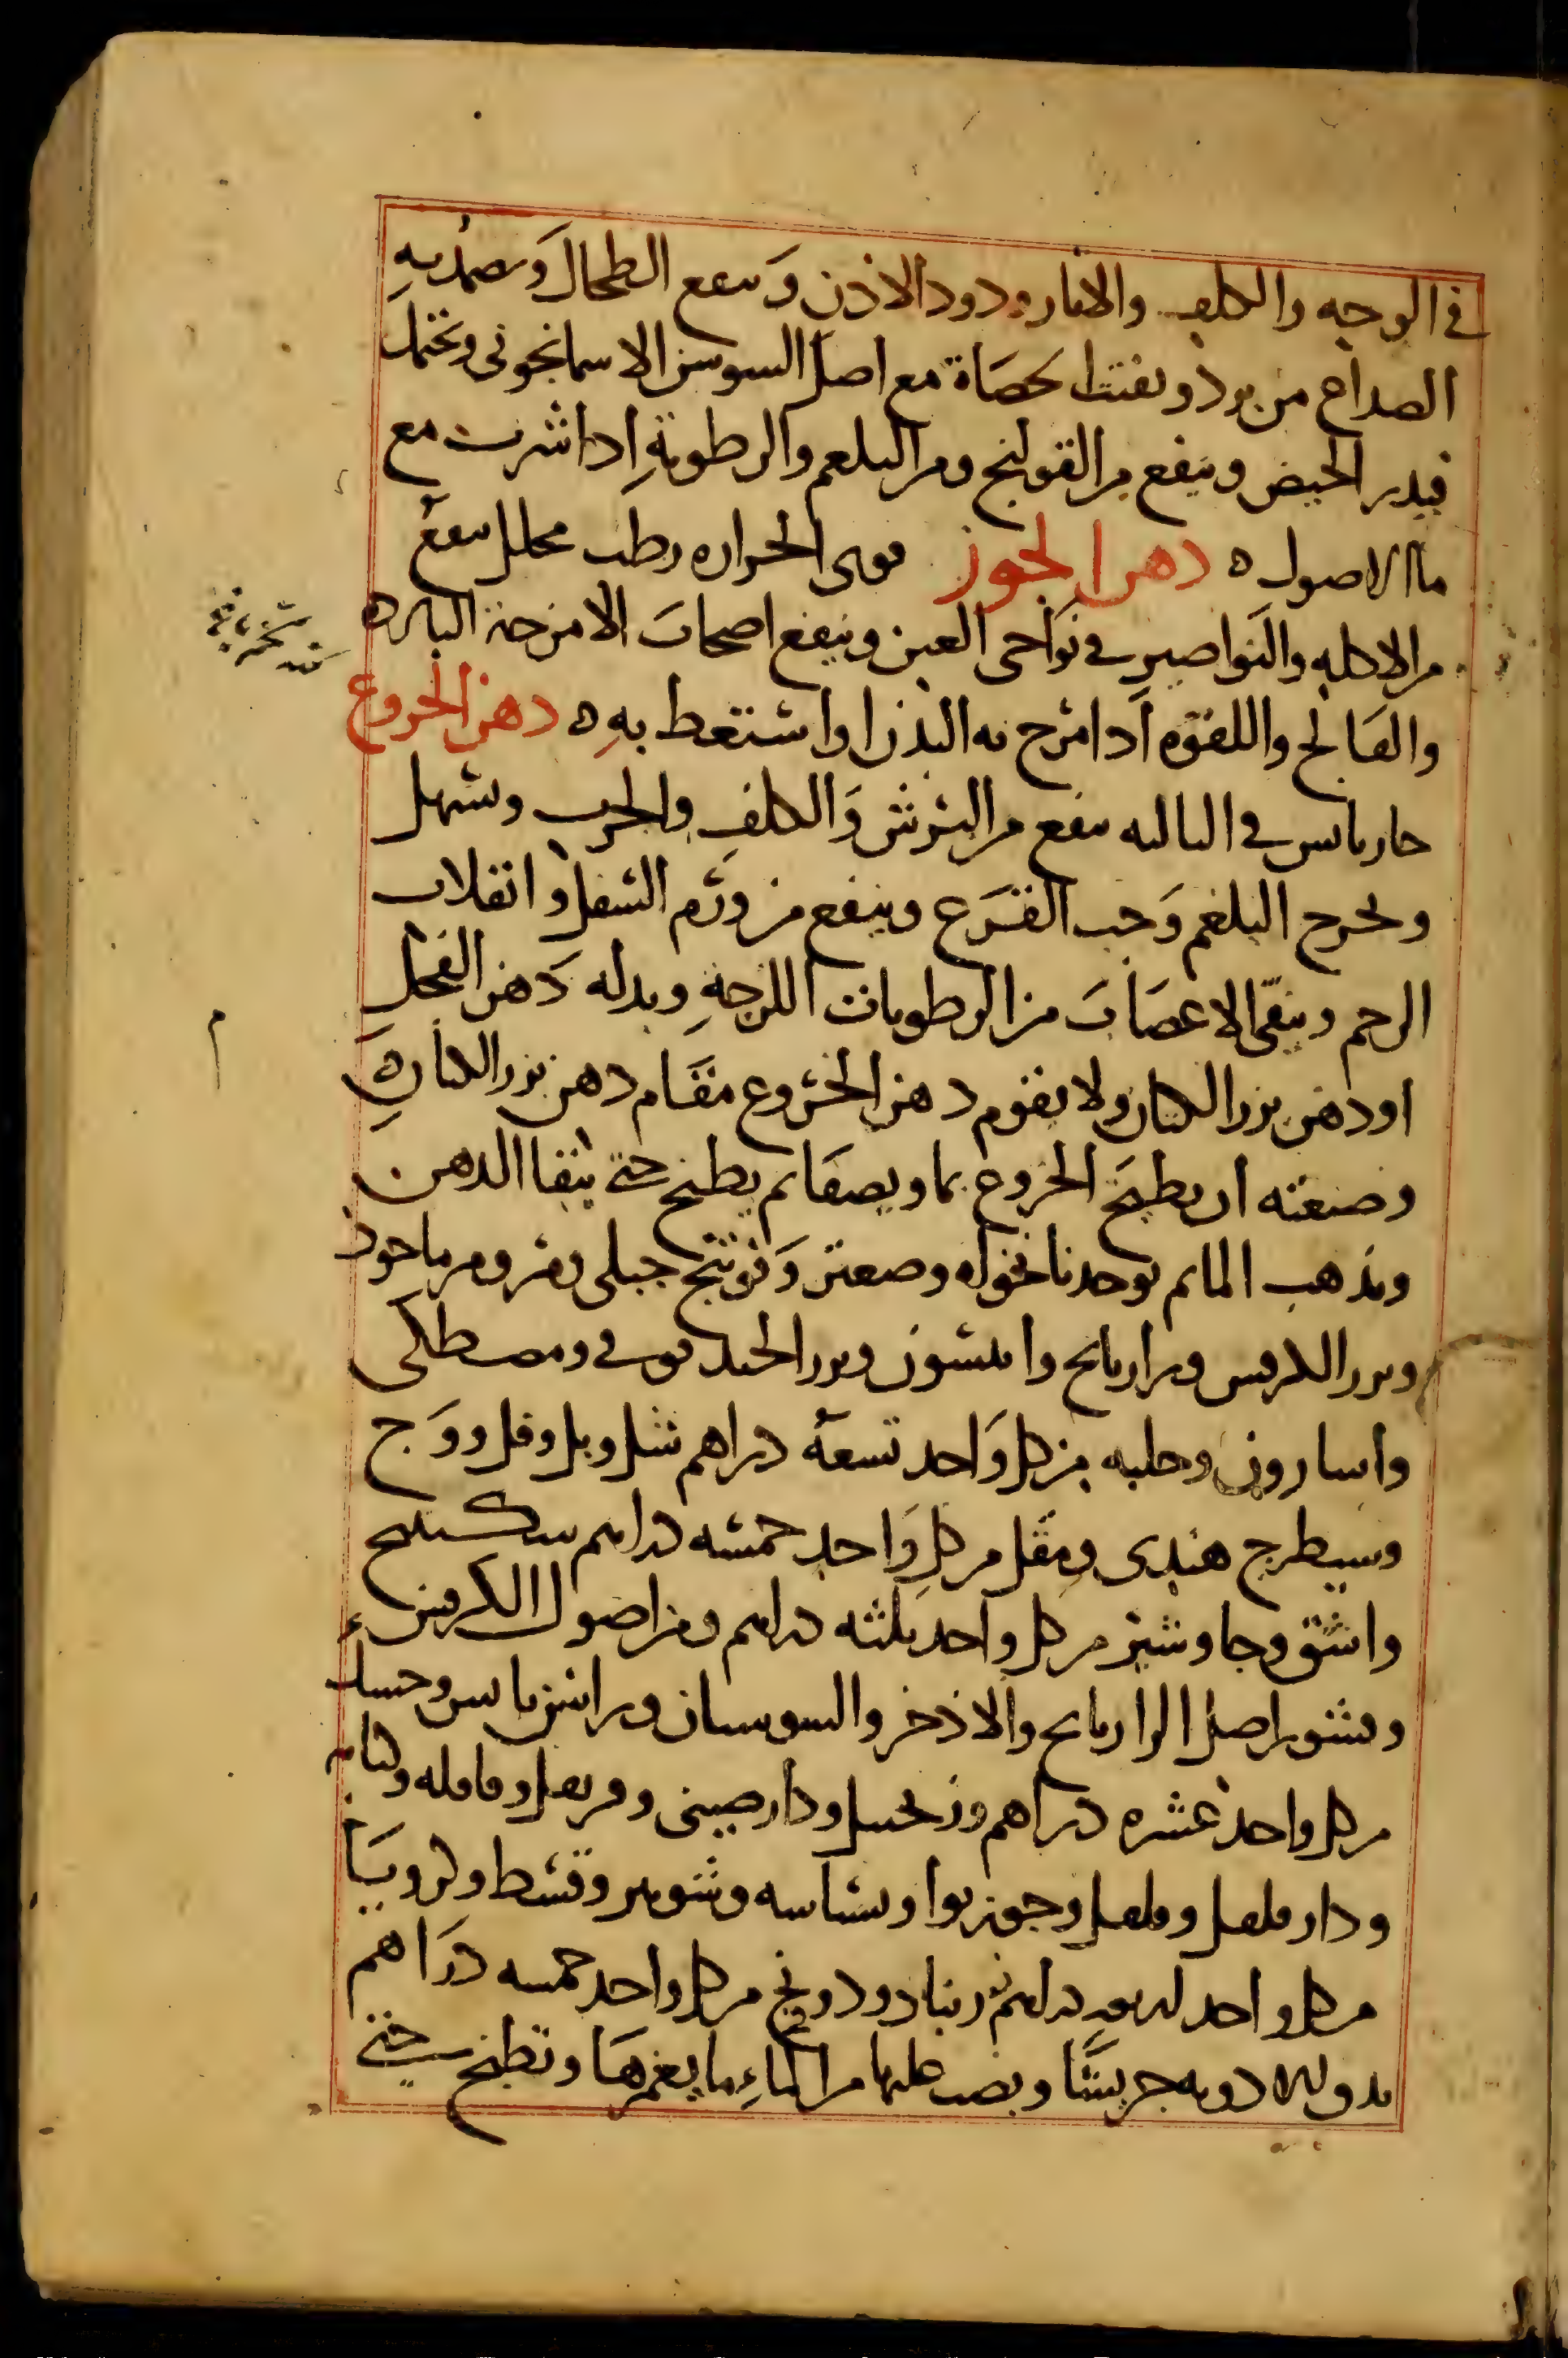 في الوجه والكلف والاثار ودود الاذن وينفع الطحال ويضمد به
الصداع من برد ويفتت الحصاة مع اصل السوسن الاسمانجوني ويحتمل
فيدر الحيض وينفع من القولنج ومن البلغم والرطوبة اذا شربت مع
ما الاصول ه دهن الجوز قوى الحراره رطب محلل ينفع
من الاكله والنواصير في نواحى العين وينفع اصحاب الامزجة البارده
والفالج واللقوه اذا مرخ به البدن او استعط به ه دهن الخروع
حار يابس في الثالثه ينفع من البرش والكلف والجرب ويسهل
ويخرج البلغم وحب القرع وينفع من ورم السفل وانقلاب
الرحم وينقى الاعصاب من الرطوبات اللزجة وبدله دهن الفجل
او دهن بزر الكتان ولا يقوم دهن الخروع مقام دهن بزر الكتان ه
وصنعته ان يطبخ الخروع بما ويصفا ثم يطبخ حتى يبقا الدهن
ويذهب الما ثم يوخذ نانخواه وصعتر وفوتنج جبلى ومر ومرماحوز
وبزر الكرفس ورازيانج وانيسون وبزر الحندقوقى ومصطكى
واسارون وحلبه من كل واحد تسعة دراهم شل وبل وفل ووج
وسيطرج هندى ومقل من كل واحد خمسه دراهم سكبينج
واشق وجاوشير من كل واحد ثلثه دراهم ومن اصول الكرفس
وقشور اصل الرازيانج والاذخر والسوسان وراسن يابس وحسك
من كل واحد عشره دراهم وزنجبيل ودارصينى وقرنفل وقاقله وكبابه
ودار فلفل وفلفل وجوز بوا وبسباسه وشونيز وقسط وكرويا
من كل واحد اربعه دراهم زرنباد ودرونج من كل واحد خمسه دراهم
يدق الادويه جريشا ويصب عليها من الماء ما يغمرها وتطبخ حتى